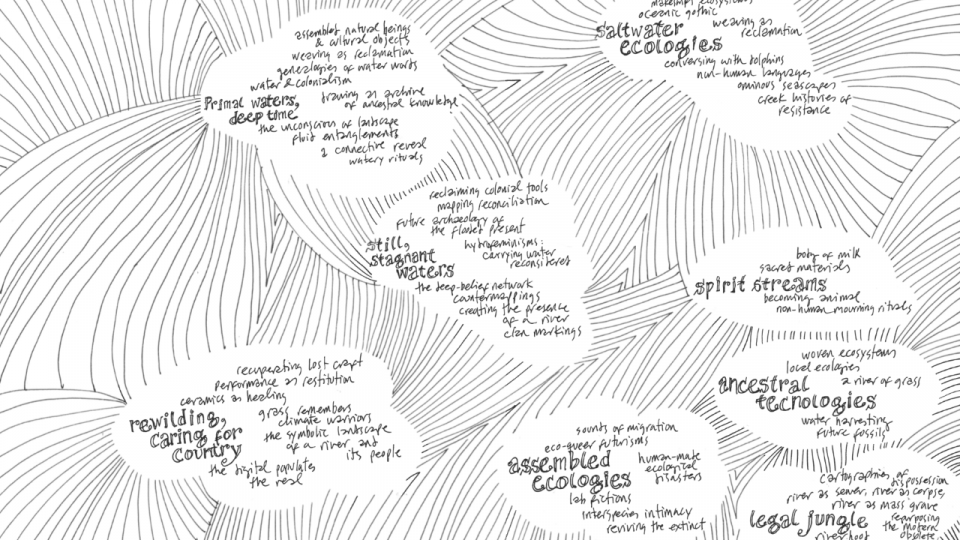 assembled natural beings
& cultural objects
weaving as reclamation
genealogies of water words
water & colonialism
Primal waters,
deep time
drawing as archive
of ancestral knowledge
the unconscious of landscape
fluid entanglements
a connective reveal
watery rituals
makeshift ecosystems
oceanic gothic
saltwater
ecologies
weaving as
reclamation
conversing with dolphins
non-human languages
ominous seascapes
creek histories of
resistance
reclaiming colonial tools
mapping reconciliation
future archaeology of
the flooded present
still,
stagnant
waters
hydrofeminisms:
carrying water
reconsidered
the deep-belief network
countermappings
creating the presence
of a river
clan markings
body of milk
sacred materials
spirit streams
becoming animal
non-human mourning rituals
woven ecosystems
local ecologies
ancestral
tecnologies
a river of grass
water harvesting
future fossils
recuperating lost craft
performance as restitution
ceramics as healing
rewilding,
caring for
country
grass remembers
climate warriors
the symbolic landscape
of a river and
its people
the digital populates
the real
sounds of migration
eco-queer futurisms
assembled
ecologies
human-made
ecological
disasters
lab fictions
interspecies intimacy
reviving the extinct
cartographies of
dispossession
river as sewer, river as corpse,
river as mass grave
legal jungle
repurposing
the modern
obsolete
riverhood